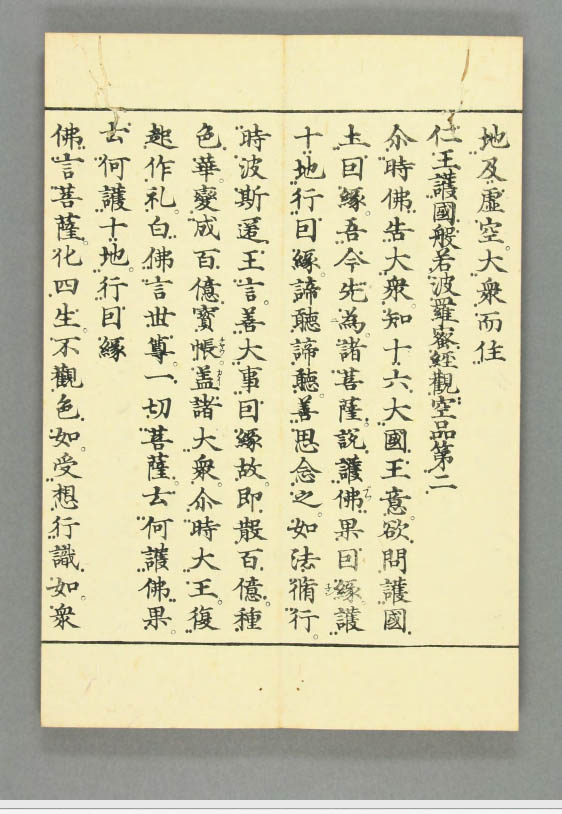 地及虚空大衆而住
仁王護國般若波羅蜜經觀空品第二
尒時佛告大衆知十六大國王意欲問護國
土囙縁吾今先為諸菩薩説護佛果囙縁護
十地行囙縁諦聽諦聽善思念之如法脩行
時波斯匿王言善大事囙縁故即散百億種
色華變成百億寳帳盖諸大衆尒時大王復
起作礼白佛言世尊一切菩薩云何護佛果
云何護十地行囙縁
佛言菩薩化四生不觀色如受想行識如衆